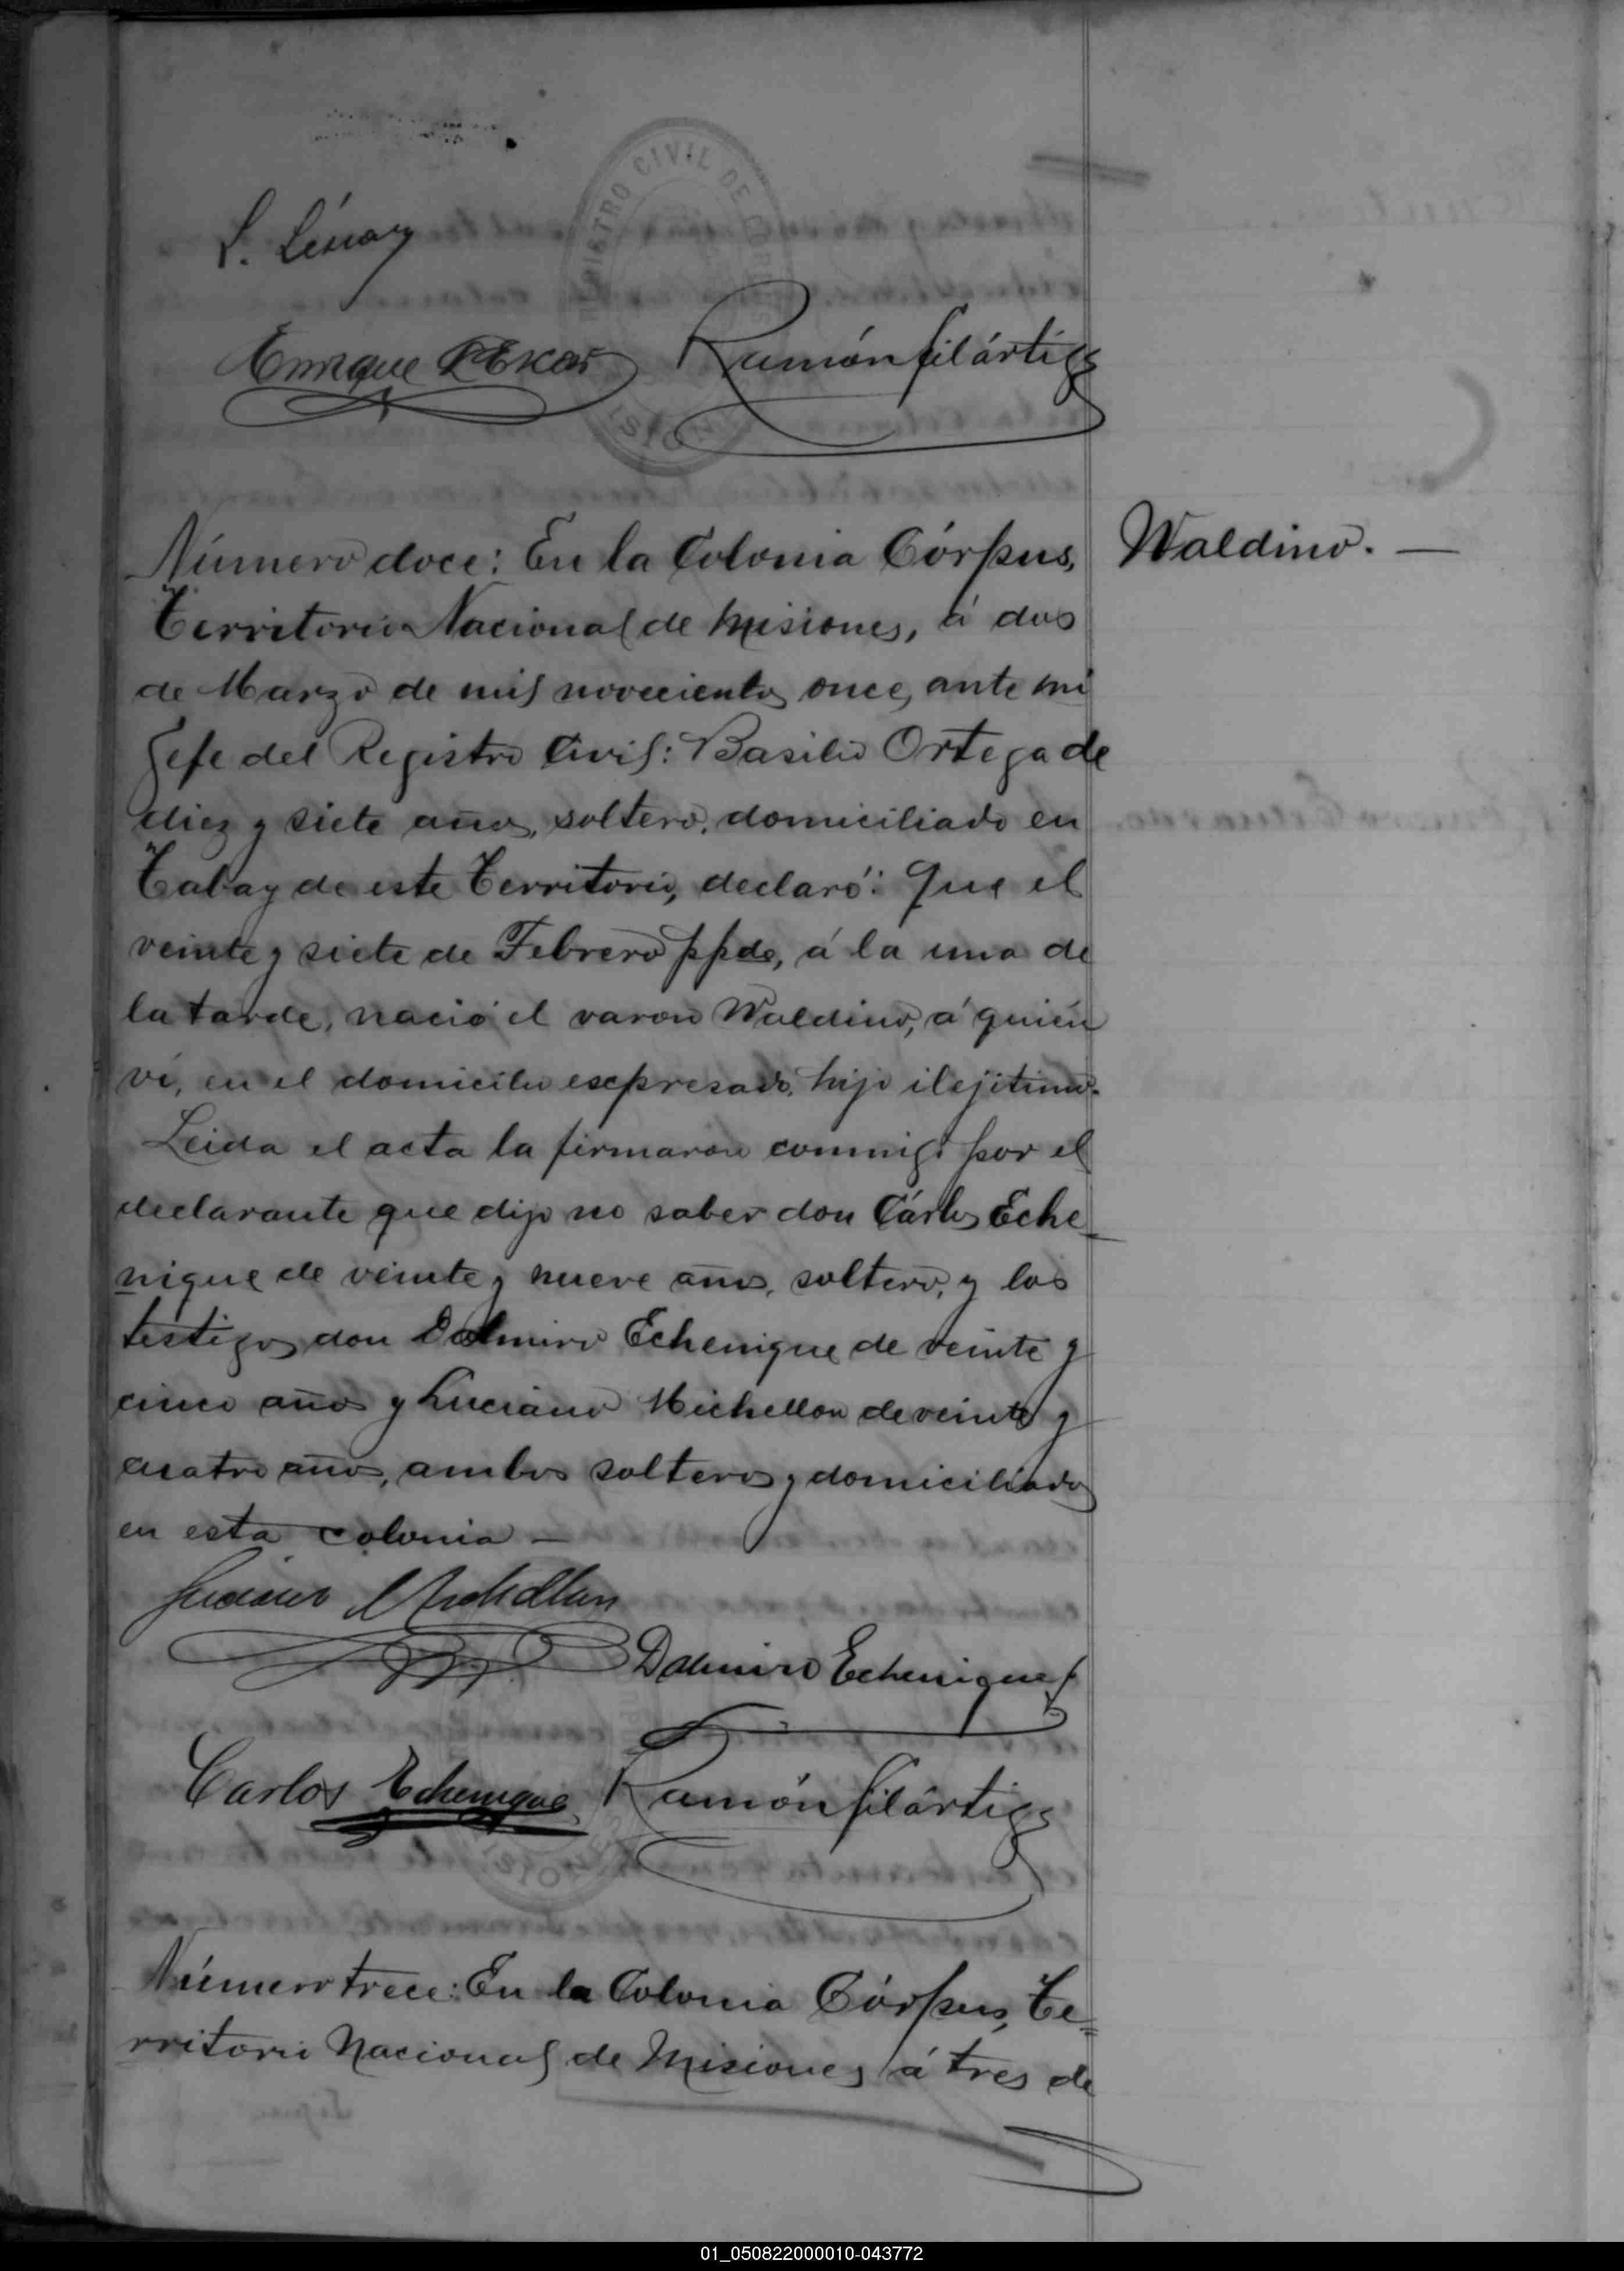 REGISTRO CIVIL DE CORPUS
Enrique
Ramón Filártiga
Número doce: En la Colonia Córpus,
Waldino. —
Territorio Nacional de Misiones, á dos
de Marzo de mil novecientos once, ante mi
Jefe del Registro Civil: Basilio Ortega de
diez y siete años, soltero, domiciliado en
Tabay de este Territorio, declaró: Que el
veinte y siete de Febrero ppdo, á la una de
la tarde, nació el varon Waldino, á quién
vi, en el domicilio expresado, hijo ilejitimo.
Leida el acta la firmaron conmigo por el
declarante que dijo no saber don Cárlos Eche
nique de veinte y nueve años, soltero, y los
testigos don Dalmiro Echenique de veinte y
cinco años y Luciano Michellon de veinte y
cuatro años, ambos solteros y domiciliados
en esta colonia —
Luciano Michellon
Dalmiro Echenique
Carlos Echenique
Ramón Filártiga
Número trece: En la Colonia Córpus, Te=
rritorio Nacional de Misiones á tres de
01_050822000010-043772